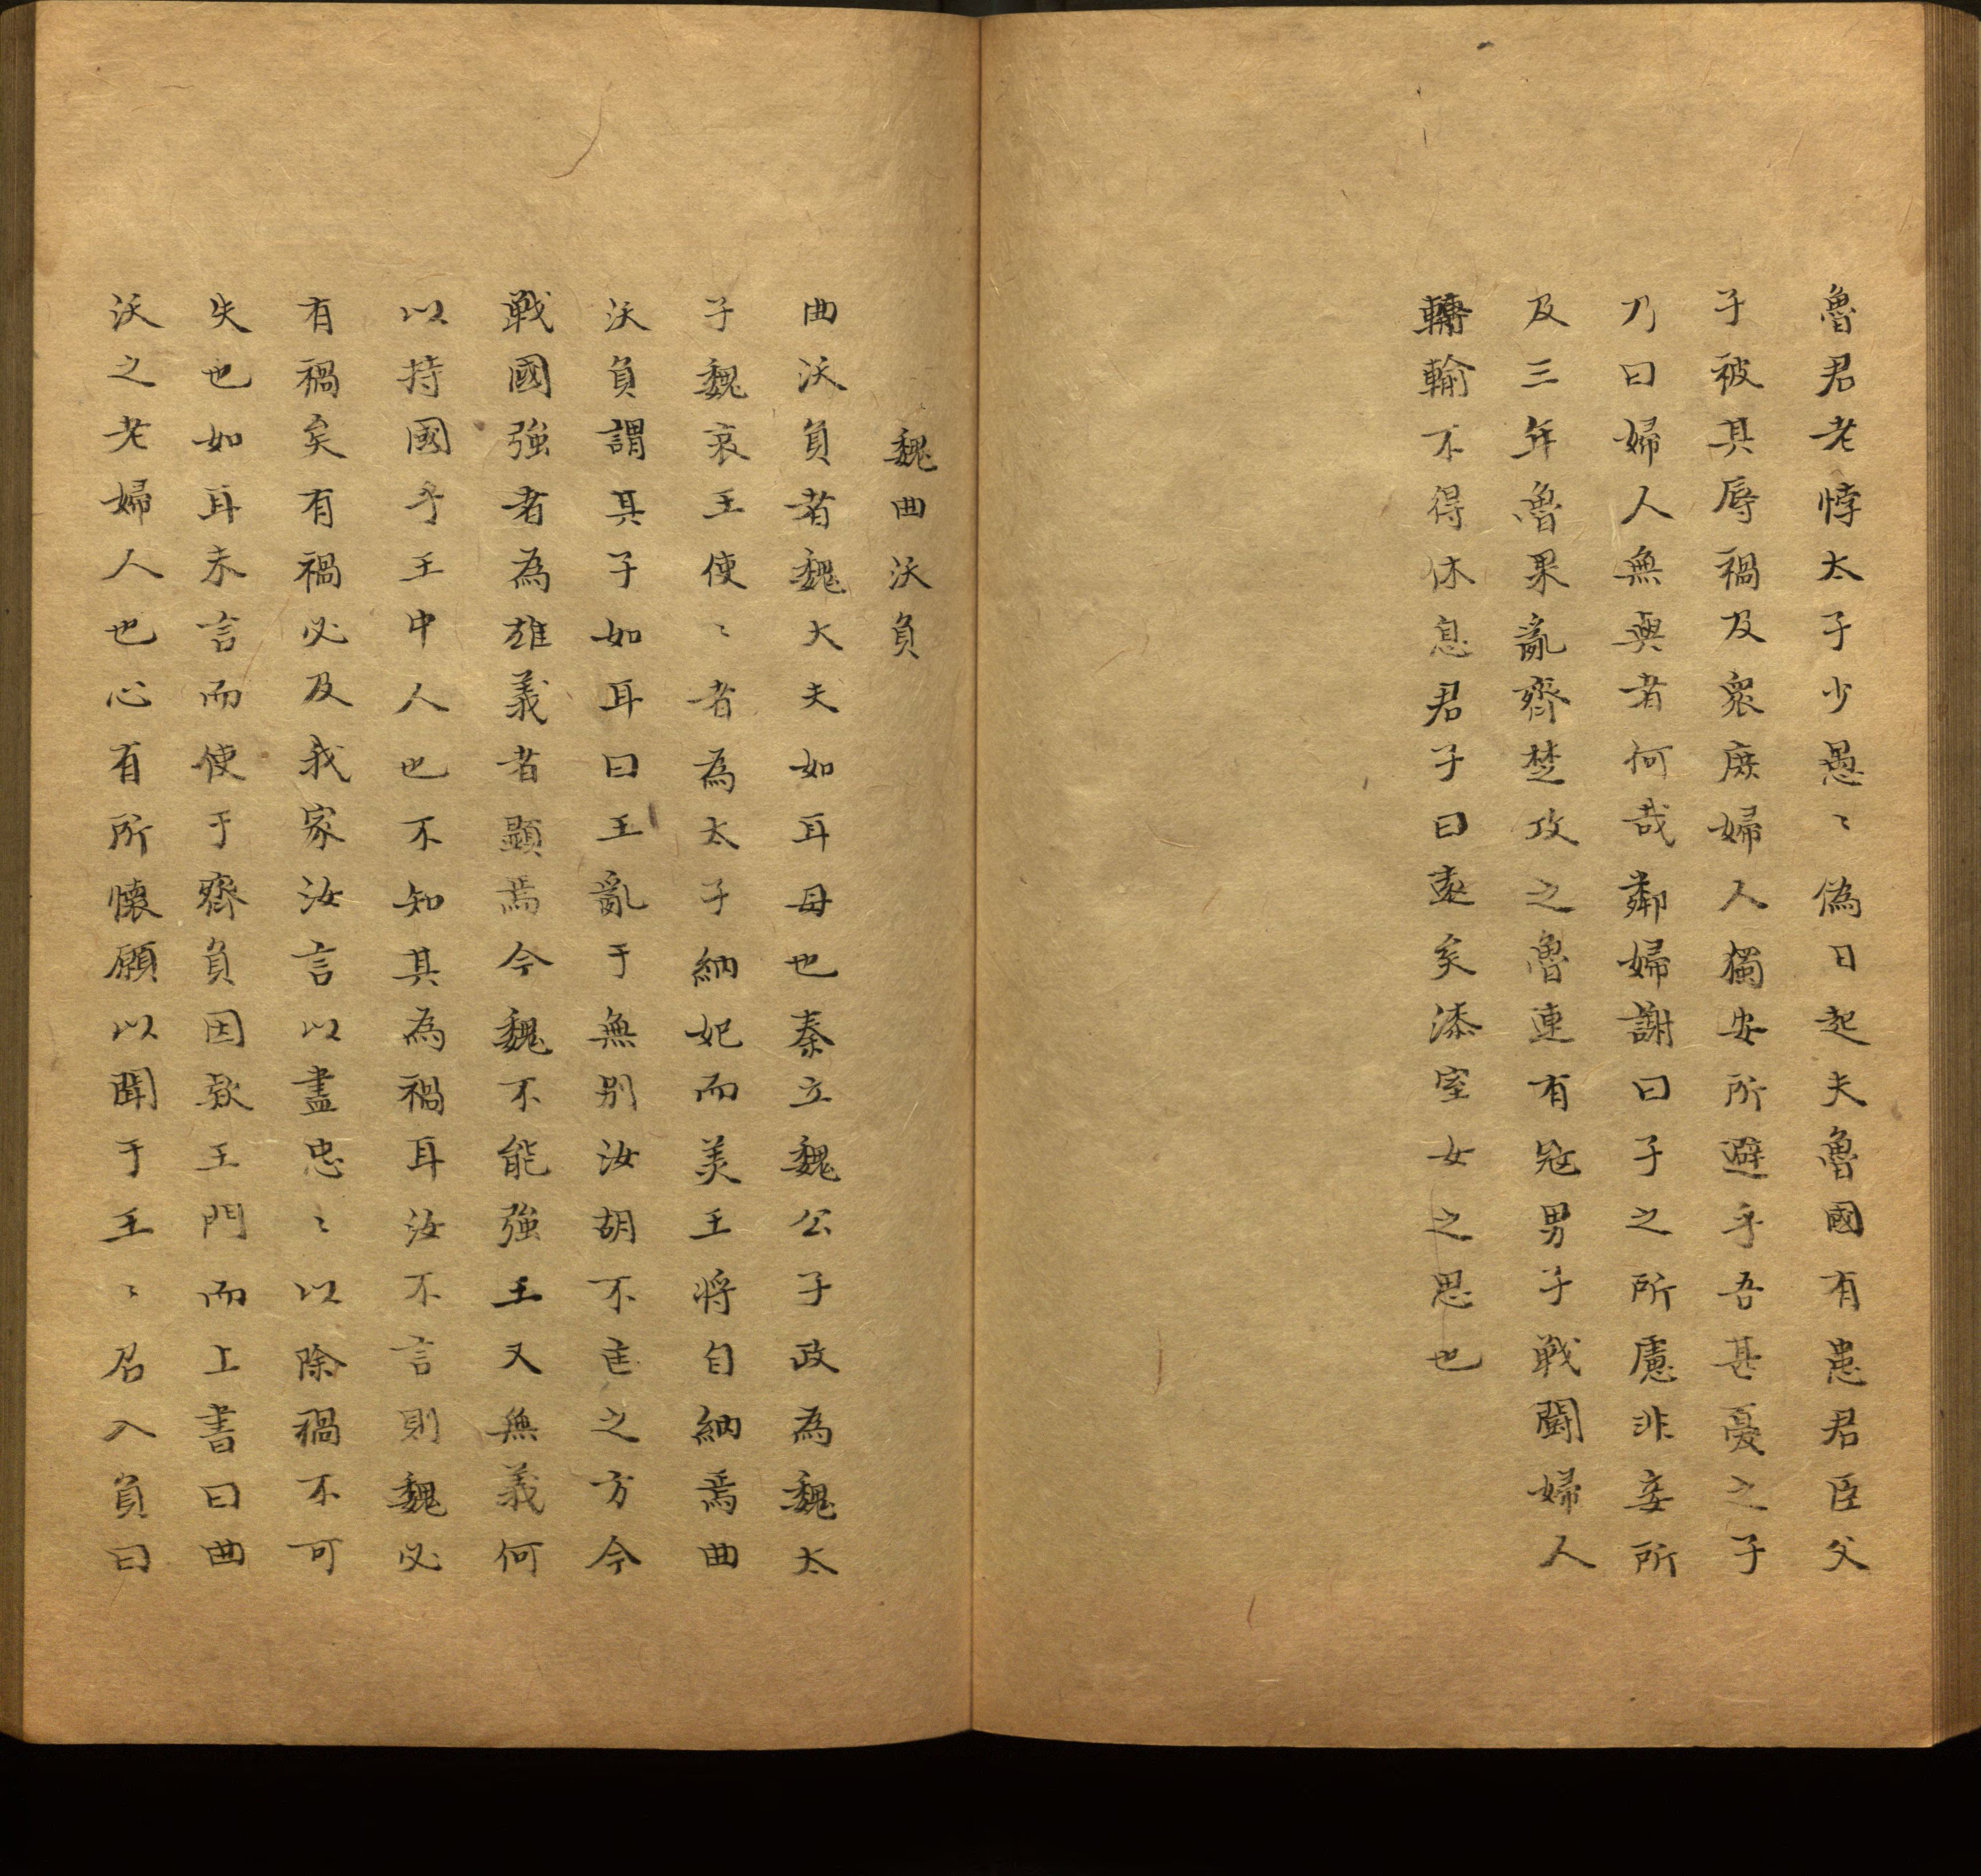 魯君老悖太子少愚〻偽日起夫魯國有患君臣父
子被其辱禍及衆庶婦人獨安所避乎吾甚憂之子
乃曰婦人無與者何哉鄰婦謝曰子之所慮非妾所
及三年魯果亂齊楚攻之魯連有寇男子戰鬪婦人
轉輸不得休息君子曰遠矣漆室女之思也
魏曲沃負
曲沃負者魏大夫如耳母也秦立魏公子政為魏太
子魏哀王使〻者為太子納妃而美王将自納焉曲
沃負謂其子如耳曰王亂于無别汝胡不匡之方今
戰國強者為雄義者顯焉今魏不能強王又無義何
以持國乎王中人也不知其為禍耳汝不言則魏必
有禍矣有禍必及我家汝言以盡忠〻以除禍不可
失也如耳未言而使于齊負因款王門而上書曰曲
沃之老婦人也心有所懐願以聞于王〻召入負曰